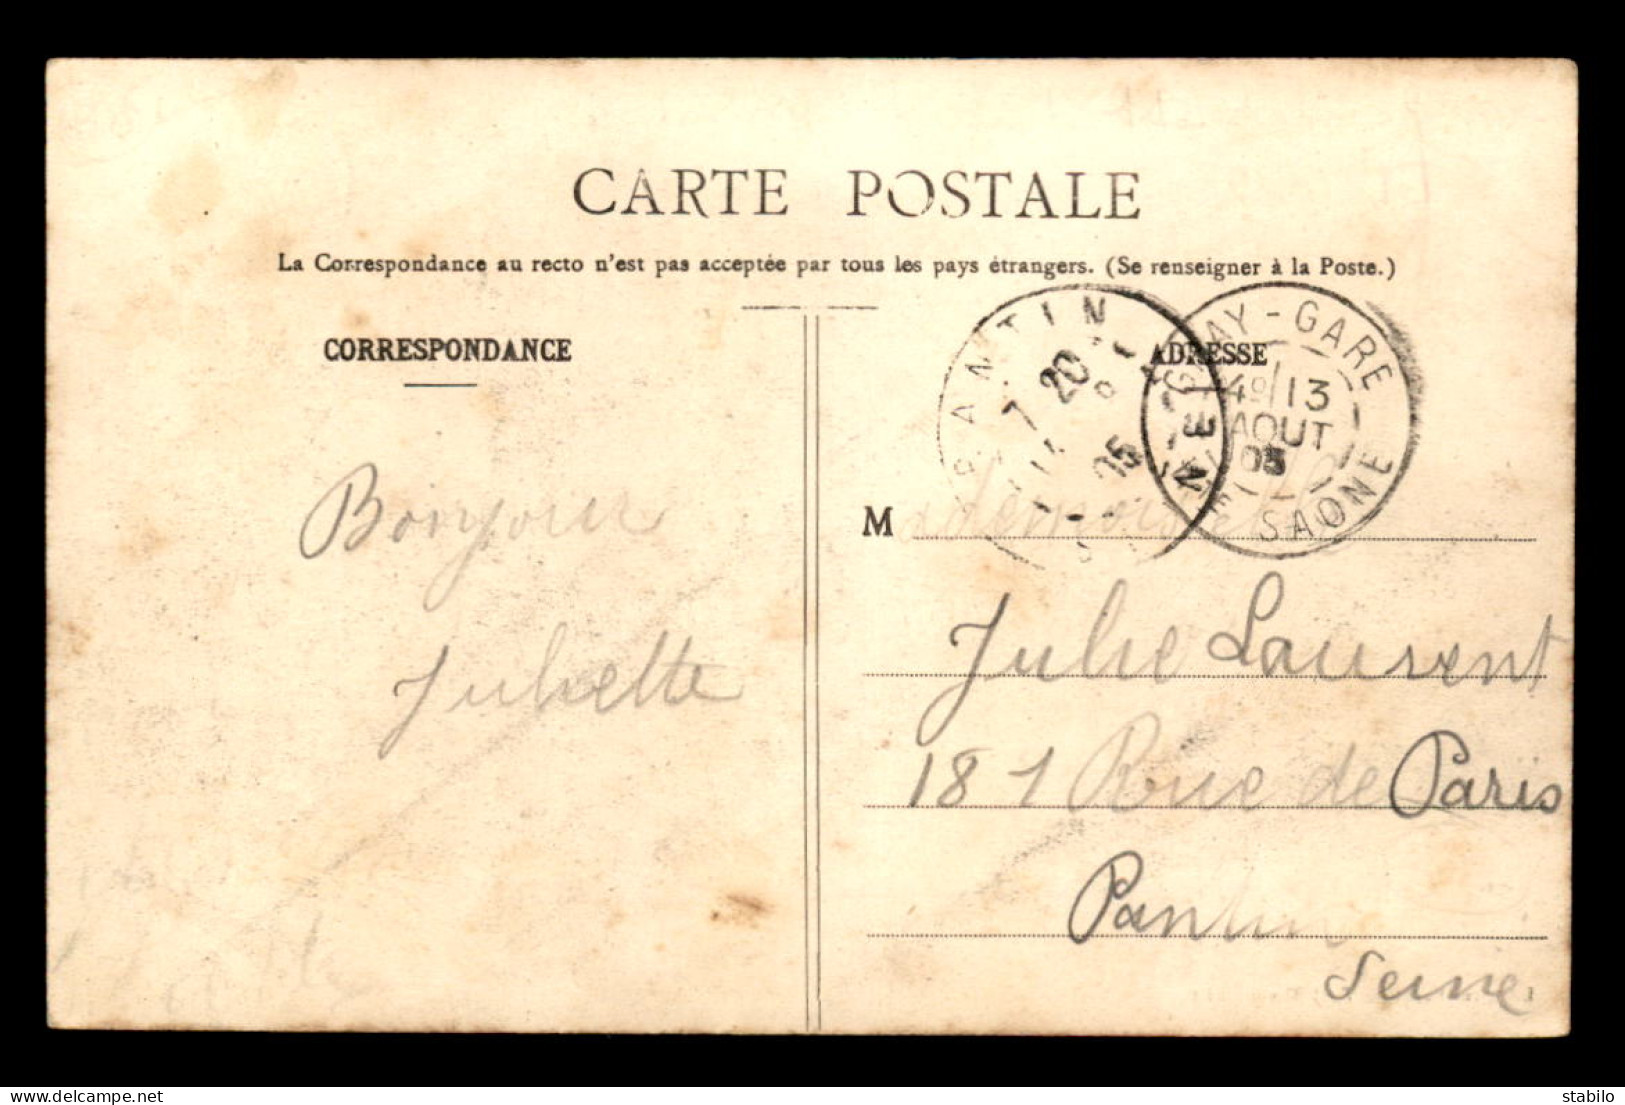 CARTE POSTALE
La Correspondance au recto n'est pas acceptée par tous les pays étrangers. (Se renseigner à la Poste.)
CORRESPONDANCE
ADRESSE
PANTIN
7 20
05
GRAY-GARE
13
AOUT
05
SAONE
Bonjour
Juliette
Mademoiselle
Julie Laurent
181 Rue de Paris
Pantin
Seine
www.delcampe.net
stabilo